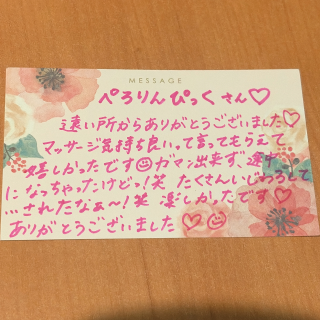 MESSAGE
ぺろりんぴっくさん♡
遠い所からありがとうございました♡
マッサージ気持ち良いって言ってもらえて
嬉しかったです☺ガマン出来ず、途中
になっちゃったけどっ!笑 たくさんいじわるして
…されたなぁ〜!笑 楽しかったです♡
ありがとうございました♡☺